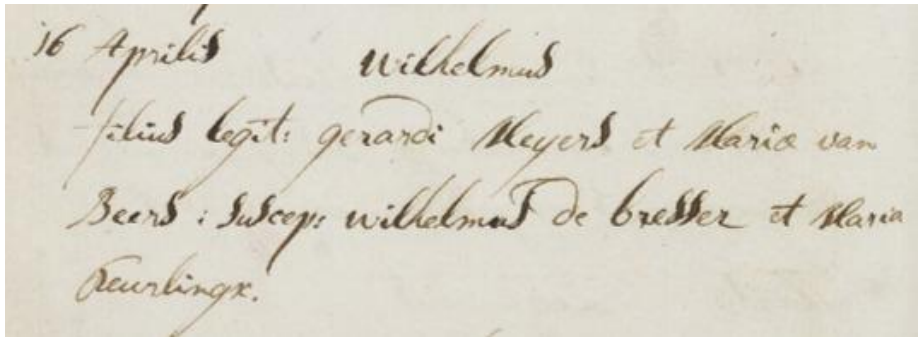 16 Aprilis Wilhelmus
filius legit: gerardi Meyers et Mariæ van
Beers : Suscep: wilhelmus de bresser et Maria
Keurlingx.